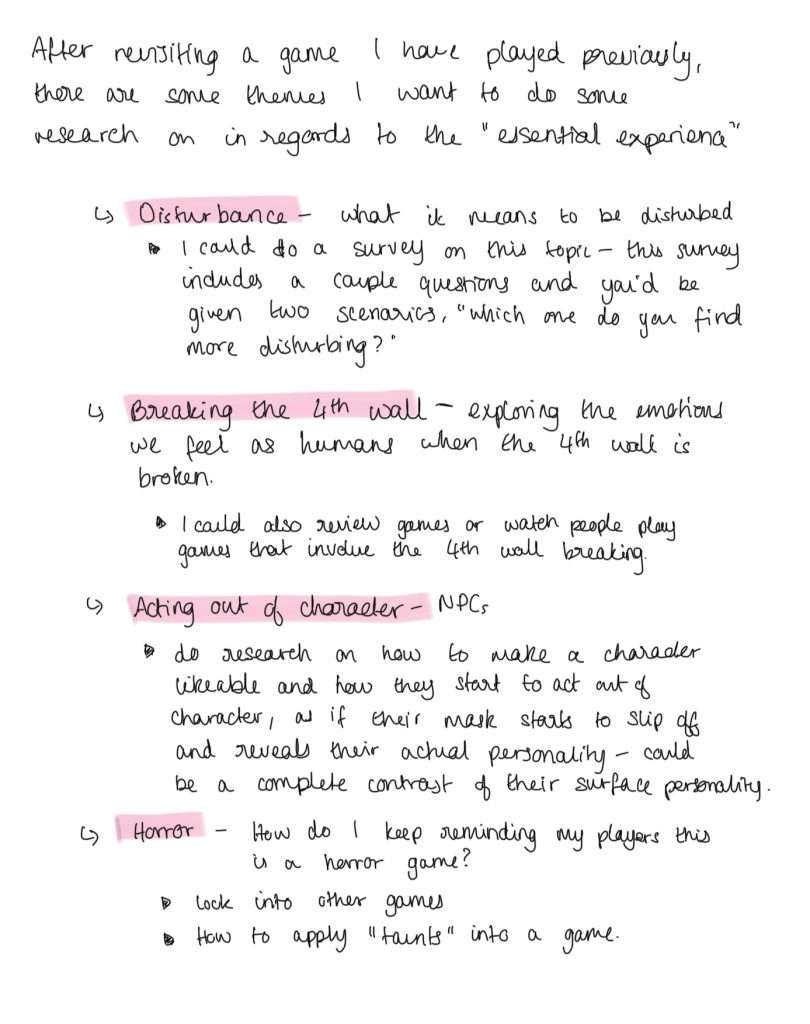 After revisiting a game I have played previously,
there are some themes I want to do some
research on in regards to the "essential experience"
↳ Disturbance - what it means to be disturbed
• I could do a survey on this topic - this survey
includes a couple questions and you'd be
given two scenarios, "which one do you find
more disturbing?"
↳ Breaking the 4th wall - exploring the emotions
we feel as humans when the 4th wall is
broken.
• I could also review games or watch people play
games that involve the 4th wall breaking.
↳ Acting out of character - NPCs
• do research on how to make a character
likeable and how they start to act out of
character, as if their mask starts to slip off
and reveals their actual personality - could
be a complete contrast of their surface personality.
↳ Horror - How do I keep reminding my players this
is a horror game?
• Look into other games
• How to apply "taunts" into a game.